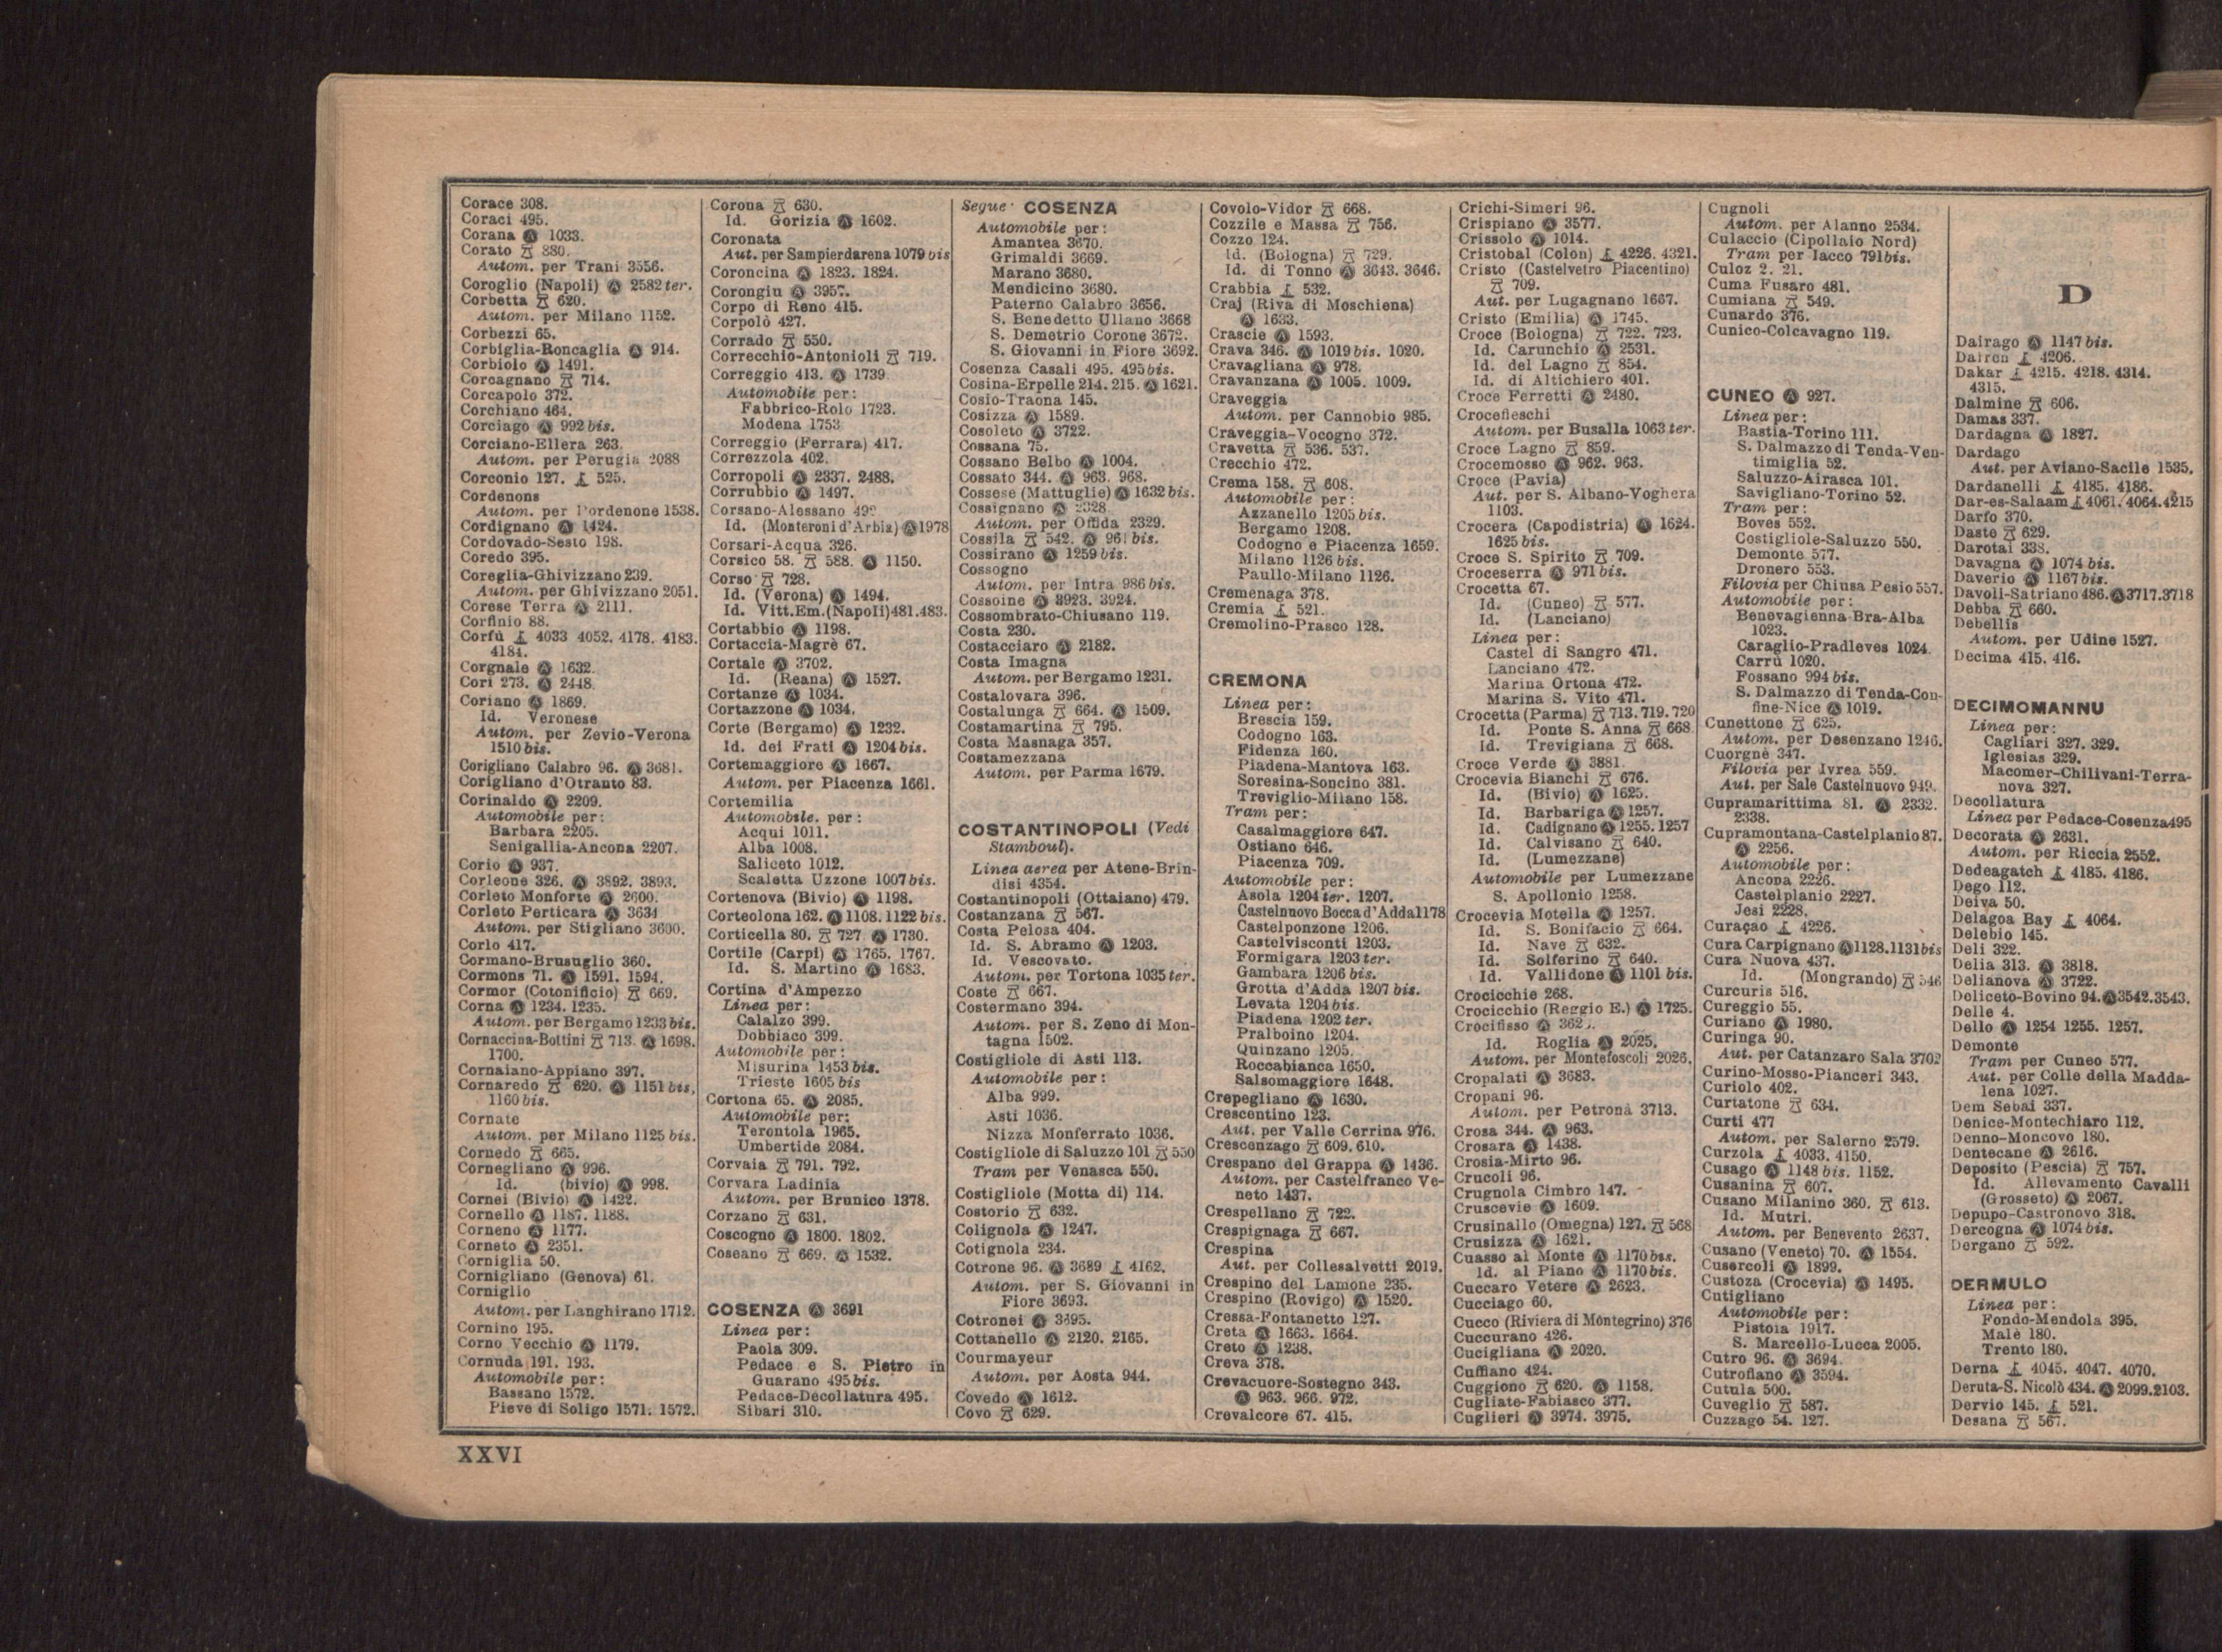 Corace 308.
Coraci 495.
Corana Ⓐ 1033.
Corato 880.
Autom. per Trani 3556.
Coroglio (Napoli) Ⓐ 2582 ter.
Corbetta 620.
Autom. per Milano 1152.
Corbezzi 65.
Corbiglia-Roncaglia Ⓐ 914.
Corbiolo Ⓐ 1491.
Corcagnano 714.
Corcapolo 372.
Corchiano 464.
Corciago Ⓐ 992 bis.
Corciano-Ellera 263.
Autom. per Perugia 2088
Corconio 127. 525.
Cordenons
Autom. per Pordenone 1538.
Cordignano Ⓐ 1424.
Cordovado-Sesto 198.
Coredo 395.
Coreglia-Ghivizzano 239.
Autom. per Ghivizzano 2051.
Corese Terra Ⓐ 2111.
Corfinio 88.
Corfù 4033 4052. 4178. 4183.
4184.
Corgnale Ⓐ 1632.
Cori 273. Ⓐ 2448
Coriano Ⓐ 1869.
Id. Veronese
Autom. per Zevio-Verona
1510 bis.
Corigliano Calabro 96. Ⓐ 3681.
Corigliano d'Otranto 83.
Corinaldo Ⓐ 2209.
Automobile per:
Barbara 2205.
Senigallia-Ancona 2207.
Corio Ⓐ 937.
Corleone 326. Ⓐ 3892. 3893.
Corleto Monforte Ⓐ 2600.
Corleto Perticara Ⓐ 3631
Autom. per Stigliano 3600.
Corlo 417.
Cormano-Brusuglio 360.
Cormons 71. Ⓐ 1591. 1594.
Cormor (Cotonificio) 669.
Corna Ⓐ 1234. 1235.
Autom. per Bergamo 1233 bis.
Cornaccina-Bottini 713. Ⓐ 1698.
1700.
Cornaiano-Appiano 397.
Cornaredo 620. Ⓐ 1151 bis,
1160 bis.
Cornate
Autom. per Milano 1125 bis.
Cornedo 665.
Cornegliano Ⓐ 996.
Id. (bivio) Ⓐ 998.
Cornei (Bivio) Ⓐ 1422.
Cornello Ⓐ 1187. 1188.
Corneno Ⓐ 1177.
Corneto Ⓐ 2351.
Corniglia 50.
Cornigliano (Genova) 61.
Corniglio
Autom. per Langhirano 1712.
Cornino 195.
Corno Vecchio Ⓐ 1179.
Cornuda 191. 193.
Automobile per:
Bassano 1572.
Pieve di Soligo 1571. 1572.
Corona 630.
Id. Gorizia Ⓐ 1602.
Coronata
Aut. per Sampierdarena 1079 bis
Coroncina Ⓐ 1823. 1824.
Corongiu Ⓐ 3957.
Corpo di Reno 415.
Corpolò 427.
Corrado 550.
Correcchio-Antonioli 719.
Correggio 413. Ⓐ 1739
Automobile per:
Fabbrico-Rolo 1723.
Modena 1753
Correggio (Ferrara) 417.
Correzzola 402.
Corropoli Ⓐ 2337. 2488.
Corrubbio Ⓐ 1497.
Corsano-Alessano
Id. (Monteroni d'Arbia) Ⓐ 1978
Corsari-Acqua 326.
Corsico 58. 588. Ⓐ 1150.
Corso 728.
Id. (Verona) Ⓐ 1494.
Id. Vitt.Em.(Napoli)481.483.
Cortabbio Ⓐ 1198.
Cortaccia-Magrè 67.
Cortale Ⓐ 3702.
Id. (Reana) Ⓐ 1527.
Cortanze Ⓐ 1034.
Cortazzone Ⓐ 1034.
Corte (Bergamo) Ⓐ 1232.
Id. dei Frati Ⓐ 1204 bis.
Cortemaggiore Ⓐ 1667.
Autom. per Piacenza 1661.
Cortemilia
Automobile. per:
Acqui 1011.
Alba 1008.
Saliceto 1012.
Scaletta Uzzone 1007 bis.
Cortenova (Bivio) Ⓐ 1198.
Corteolona 162. Ⓐ 1108. 1122 bis.
Corticella 80. 727 Ⓐ 1730.
Cortile (Carpi) Ⓐ 1765. 1767.
Id. S. Martino Ⓐ 1683.
Cortina d'Ampezzo
Linea per:
Calalzo 399.
Dobbiaco 399.
Automobile per:
Misurina 1453 bis.
Trieste 1605 bis
Cortona 65. Ⓐ 2085.
Automobile per:
Terontola 1965.
Umbertide 2084.
Corvaia 791. 792.
Corvara Ladinia
Autom. per Brunico 1378.
Corzano 631.
Coscogno Ⓐ 1800. 1802.
Coseano 669. Ⓐ 1532.
COSENZA Ⓐ 3691
Linea per:
Paola 309.
Pedace e S. Pietro in
Guarano 495 bis.
Pedace-Decollatura 495.
Sibari 310.
Segue COSENZA
Automobile per:
Amantea 3670.
Grimaldi 3669.
Marano 3680.
Mendicino 3680.
Paterno Calabro 3656.
S. Benedetto Ullano 3668
S. Demetrio Corone 3672.
S. Giovanni in Fiore 3692.
Cosenza Casali 495. 495 bis.
Cosina-Erpelle 214. 215. Ⓐ 1621.
Cosio-Traona 145.
Cosizza Ⓐ 1589.
Cosoleto Ⓐ 3722.
Cossana 75.
Cossano Belbo Ⓐ 1004.
Cossato 344. Ⓐ 963. 968.
Cossese (Mattuglie) Ⓐ 1632 bis.
Cossignano Ⓐ 2328
Autom. per Offida 2329.
Cossila 542. Ⓐ 961 bis.
Cossirano Ⓐ 1259 bis.
Cossogno
Autom. per Intra 986 bis.
Cossoine Ⓐ 3923. 3924.
Cossombrato-Chiusano 119.
Costa 230.
Costacciaro Ⓐ 2182.
Costa Imagna
Autom. per Bergamo 1231.
Costalovara 396.
Costalunga 664. Ⓐ 1509.
Costamartina 795.
Costa Masnaga 357.
Costamezzana
Autom. per Parma 1679.
COSTANTINOPOLI (Vedi
Stamboul).
Linea aerea per Atene-Brin-
disi 4354.
Costantinopoli (Ottaiano) 479.
Costanzana 567.
Costa Pelosa 404.
Id. S. Abramo Ⓐ 1203.
Id. Vescovato.
Autom. per Tortona 1035 ter.
Coste 667.
Costermano 394.
Autom. per S. Zeno di Mon-
tagna 1502.
Costigliole di Asti 113.
Automobile per:
Alba 999.
Asti 1036.
Nizza Monferrato 1036.
Costigliole di Saluzzo 101 550
Tram per Venasca 550.
Costigliole (Motta di) 114.
Costorio 632.
Colignola Ⓐ 1247.
Cotignola 234.
Cotrone 96. Ⓐ 3689 4162.
Autom. per S. Giovanni in
Fiore 3693.
Cotronei Ⓐ 3695.
Cottanello Ⓐ 2120. 2165.
Courmayeur
Autom. per Aosta 944.
Covedo Ⓐ 1612.
Covo 629.
Covolo-Vidor 668.
Cozzile e Massa 756.
Cozzo 124.
Id. (Bologna) 729.
Id. di Tonno Ⓐ 3643. 3646.
Crabbia 532.
Craj (Riva di Moschiena)
Ⓐ 1633.
Crascie Ⓐ 1593.
Crava 346. Ⓐ 1019 bis. 1020.
Cravagliana Ⓐ 978.
Cravanzana Ⓐ 1005. 1009.
Craveggia
Autom. per Cannobio 985.
Craveggia-Vocogno 372.
Cravetta 536. 537.
Crecchio 472.
Crema 158. 608.
Automobile per:
Azzanello 1205 bis.
Bergamo 1208.
Codogno e Piacenza 1659.
Milano 1126 bis.
Paullo-Milano 1126.
Cremenaga 378.
Cremia 521.
Cremolino-Prasco 128.
CREMONA
Linea per:
Brescia 159.
Codogno 163.
Fidenza 160.
Piadena-Mantova 163.
Soresina-Soncino 381.
Treviglio-Milano 158.
Tram per:
Casalmaggiore 647.
Ostiano 646.
Piacenza 709.
Automobile per:
Asola 1204 ter. 1207.
Castelnuovo Bocca d'Adda1178
Castelponzone 1206.
Castelvisconti 1203.
Formigara 1203 ter.
Gambara 1206 bis.
Grotta d'Adda 1207 bis.
Levata 1204 bis.
Piadena 1202 ter.
Pralboino 1204.
Quinzano 1205.
Roccabianca 1650.
Salsomaggiore 1648.
Crepegliano Ⓐ 1630.
Crescentino 123.
Aut. per Valle Cerrina 976.
Crescenzago 609. 610.
Crespano del Grappa Ⓐ 1436.
Autom. per Castelfranco Ve-
neto 1437.
Crespellano 722.
Crespignaga 667.
Crespina
Aut. per Collesalvetti 2019.
Crespino del Lamone 235.
Crespino (Rovigo) Ⓐ 1520.
Cressa-Fontanetto 127.
Creta Ⓐ 1663. 1664.
Creto Ⓐ 1238.
Creva 378.
Crevacuore-Sostegno 343.
Ⓐ 963. 966. 972.
Crevalcore 67. 415.
Crichi-Simeri 96.
Crispiano Ⓐ 3577.
Crissolo Ⓐ 1014.
Cristobal (Colon) 4226. 4321.
Cristo (Castelvetro Piacentino)
709.
Aut. per Lugagnano 1667.
Cristo (Emilia) Ⓐ 1745.
Croce (Bologna) 722. 723.
Id. Carunchio Ⓐ 2531.
Id. del Lagno 854.
Id. di Altichiero 401.
Croce Ferretti Ⓐ 2480.
Crocefieschi
Autom. per Busalla 1063 ter.
Croce Lagno 859.
Crocemosso Ⓐ 962. 963.
Croce (Pavia)
Aut. per S. Albano-Voghera
1103.
Crocera (Capodistria) Ⓐ 1624.
1625 bis.
Croce S. Spirito 709.
Croceserra Ⓐ 971 bis.
Crocetta 67.
Id. (Cuneo) 577.
Id. (Lanciano)
Linea per:
Castel di Sangro 471.
Lanciano 472.
Marina Ortona 472.
Marina S. Vito 471.
Crocetta (Parma) 713. 719. 720
Id. Ponte S. Anna 668
Id. Trevigiana 668.
Croce Verde Ⓐ 3881.
Crocevia Bianchi 676.
Id. (Bivio) Ⓐ 1625.
Id. Barbariga Ⓐ 1257.
Id. Cadignano Ⓐ 1255. 1257
Id. Calvisano 640.
Id. (Lumezzane)
Automobile per Lumezzane
S. Apollonio 1258.
Crocevia Motella Ⓐ 1257.
Id. S. Bonifacio 664.
Id. Nave 632.
Id. Solferino 640.
Id. Vallidone Ⓐ 1101 bis.
Crocicchie 268.
Crocicchio (Reggio E.) Ⓐ 1725.
Crocifisso Ⓐ
Id. Roglia Ⓐ 2025.
Autom. per Montefoscoli 2026.
Cropalati Ⓐ 3683.
Cropani 96.
Autom. per Petronà 3713.
Crosa 344. Ⓐ 963.
Crosara Ⓐ 1438.
Crosia-Mirto 96.
Crucoli 96.
Crugnola Cimbro 147.
Cruscevie Ⓐ 1609.
Crusinallo (Omegna) 127. 568
Crusizza Ⓐ 1621.
Cuasso al Monte Ⓐ 1170 bis.
Id. al Piano Ⓐ 1170 bis.
Cuccaro Vetere Ⓐ 2623.
Cucciago 60.
Cucco (Riviera di Montegrino) 376
Cuccurano 426.
Cucigliana Ⓐ 2020.
Cuffiano 424.
Cuggiono 620. Ⓐ 1158.
Cugliate-Fabiasco 377.
Cuglieri Ⓐ 3974. 3975.
Cugnoli
Autom. per Alanno 2534.
Culaccio (Cipollaio Nord)
Tram per Iacco 791bis.
Culoz 2. 21.
Cuma Fusaro 481.
Cumiana 549.
Cunardo 376.
Cunico-Colcavagno 119.
CUNEO Ⓐ 927.
Linea per:
Bastia-Torino 111.
S. Dalmazzo di Tenda-Ven-
timiglia 52.
Saluzzo-Airasca 101.
Savigliano-Torino 52.
Tram per:
Boves 552.
Costigliole-Saluzzo 550.
Demonte 577.
Dronero 553.
Filovia per Chiusa Pesio 557.
Automobile per:
Benevagienna-Bra-Alba
1023.
Caraglio-Pradleves 1024.
Carrù 1020.
Fossano 994 bis.
S. Dalmazzo di Tenda-Con-
fine-Nice Ⓐ 1019.
Cunettone 625.
Autom. per Desenzano 1246.
Cuorgnè 347.
Filovia per Ivrea 559.
Aut. per Sale Castelnuovo 949.
Cupramarittima 81. Ⓐ 2332.
2338.
Cupramontana-Castelplanio 87.
Ⓐ 2256.
Automobile per:
Ancona 2226.
Castelplanio 2227.
Jesi 2228.
Curaçao 4226.
Cura Carpignano Ⓐ1128.1131bis
Cura Nuova 437.
Id. (Mongrando) 546
Curcuris 516.
Cureggio 55.
Curiano Ⓐ 1980.
Curinga 90.
Aut. per Catanzaro Sala 3702
Curino-Mosso-Pianceri 343.
Curiolo 402.
Curtatone 634.
Curti 477
Autom. per Salerno 2579.
Curzola 4033. 4150.
Cusago Ⓐ 1148 bis. 1152.
Cusanina 607.
Cusano Milanino 360. 613.
Id. Mutri.
Autom. per Benevento 2637.
Cusano (Veneto) 70. Ⓐ 1554.
Cusercoli Ⓐ 1899.
Custoza (Crocevia) Ⓐ 1495.
Cutigliano
Automobile per:
Pistoia 1917.
S. Marcello-Lucca 2005.
Cutro 96. Ⓐ 3694
Cutrofiano Ⓐ 3594.
Cutula 500.
Cuveglio 587.
Cuzzago 54. 127.
D
Dairago Ⓐ 1147 bis.
Dairen 4206.
Dakar 4215. 4218. 4314.
4315.
Dalmine 606.
Damas 337.
Dardagna Ⓐ 1827.
Dardago
Aut. per Aviano-Sacile 1535.
Dardanelli 4185. 4186.
Dar-es-Salaam 4061. 4064.4215
Darfo 370.
Daste 629.
Darotai 338.
Davagna Ⓐ 1074 bis.
Daverio Ⓐ 1167 bis.
Davoli-Satriano 486. Ⓐ3717.3718
Debba 660.
Debellis
Autom. per Udine 1527.
Decima 415. 416.
DECIMOMANNU
Linea per:
Cagliari 327. 329.
Iglesias 329.
Macomer-Chilivani-Terra-
nova 327.
Decollatura
Linea per Pedace-Cosenza495
Decorata Ⓐ 2631.
Autom. per Riccia 2552.
Dedeagatch 4185. 4186.
Dego 112.
Deiva 50.
Delagoa Bay 4064.
Delebio 145.
Deli 322.
Delia 313. Ⓐ 3818.
Delianova Ⓐ 3722.
Deliceto-Bovino 94. Ⓐ3542.3543.
Delle 4.
Dello Ⓐ 1254 1255. 1257.
Demonte
Tram per Cuneo 577.
Aut. per Colle della Madda-
lena 1027.
Dem Sebai 337.
Denice-Montechiaro 112.
Denno-Moncovo 180.
Dentecane Ⓐ 2616.
Deposito (Pescia) 757.
Id. Allevamento Cavalli
(Grosseto) Ⓐ 2067.
Depupo-Castronovo 318.
Dercogna Ⓐ 1074 bis.
Dergano 592.
DERMULO
Linea per:
Fondo-Mendola 395.
Malè 180.
Trento 180.
Derna 4045. 4047. 4070.
Deruta-S. Nicolò 434. Ⓐ 2099.2103.
Dervio 145. 521.
Desana 567.
XXVI